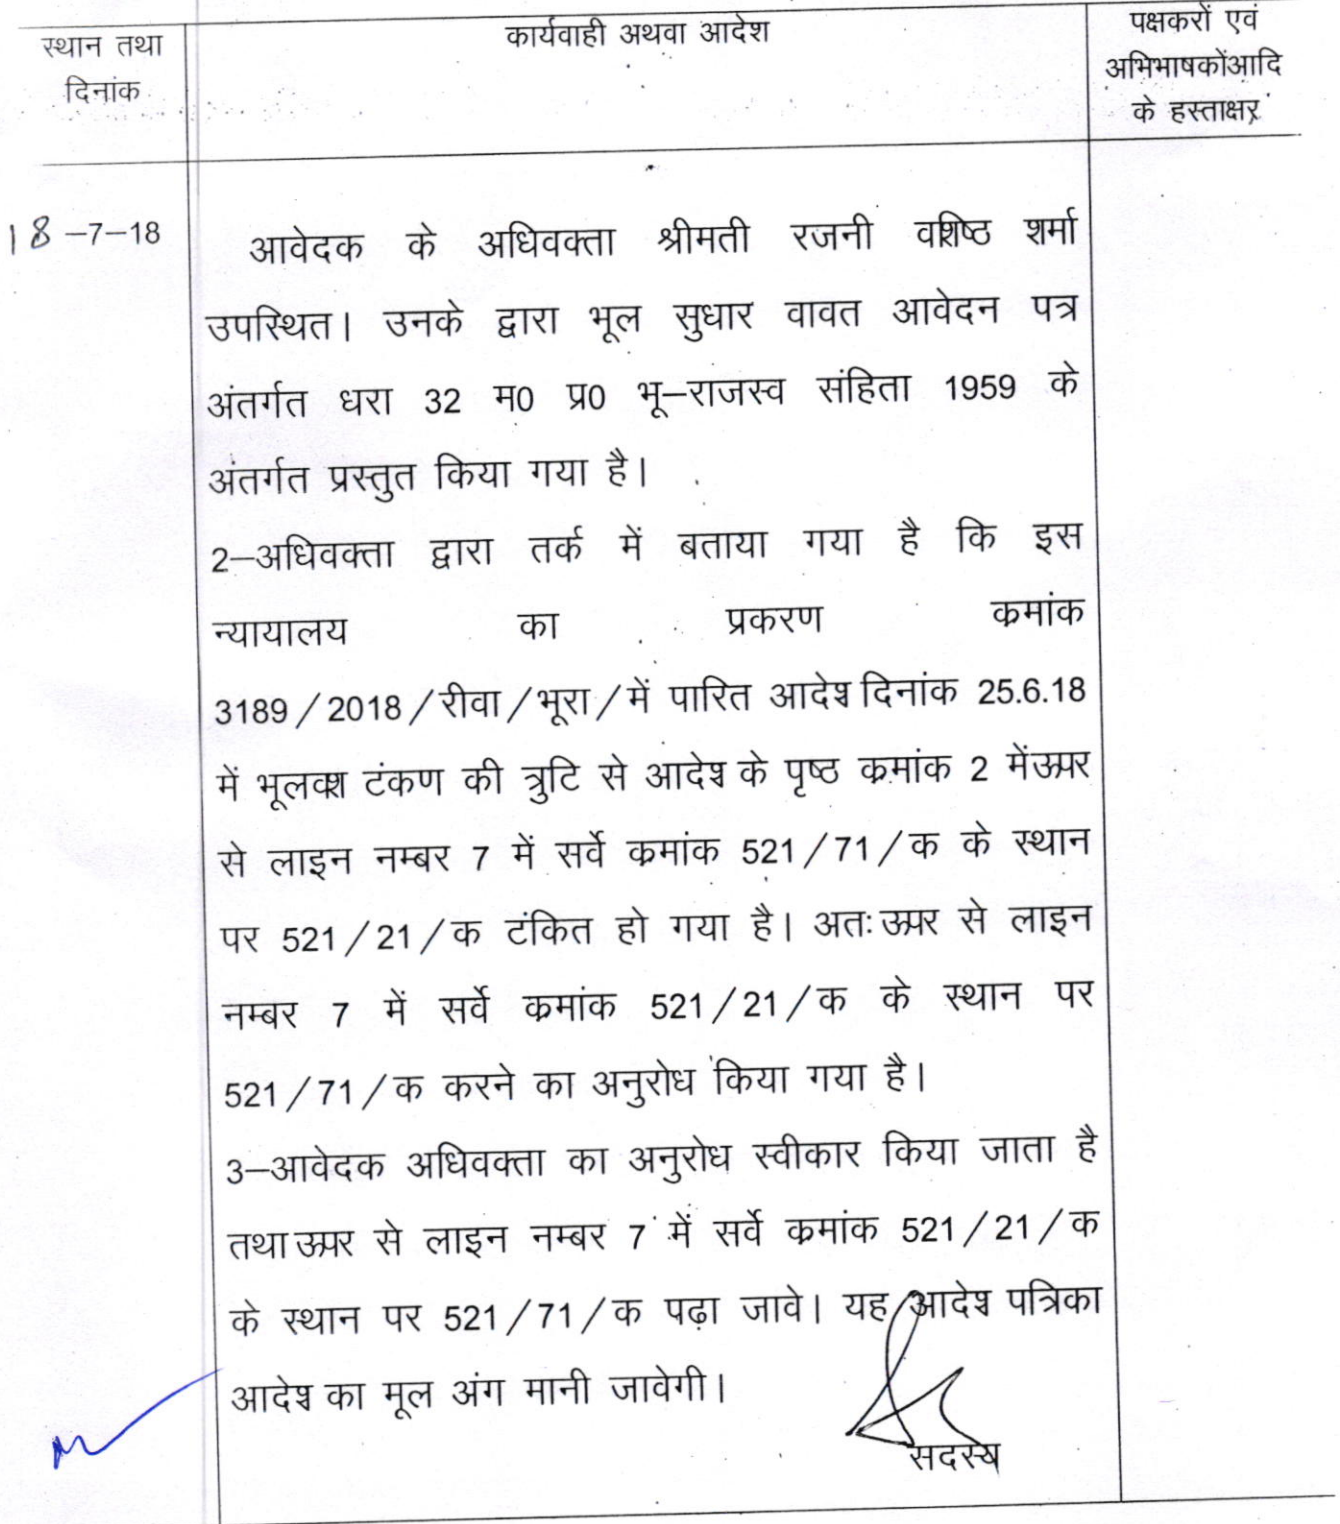 स्थान तथा
दिनांक
कार्यवाही अथवा आदेश
पक्षकरों एवं
अभिभाषकोंआदि
के हस्ताक्षर
18-7-18
आवेदक के अधिवक्ता श्रीमती रजनी वशिष्ठ शर्मा
उपस्थित। उनके द्वारा भूल सुधार वावत आवेदन पत्र
अंतर्गत धरा 32 म0 प्र0 भू-राजस्व संहिता 1959 के
अंतर्गत प्रस्तुत किया गया है।
2-अधिवक्ता द्वारा तर्क में बताया गया है कि इस
न्यायालय का प्रकरण कमांक
3189/2018/रीवा/भूरा/में पारित आदेश दिनांक 25.6.18
में भूलवश टंकण की त्रुटि से आदेश के पृष्ठ कमांक 2 मेंऊपर
से लाइन नम्बर 7 में सर्वे कमांक 521/71/क के स्थान
पर 521/21/क टंकित हो गया है। अतः ऊपर से लाइन
नम्बर 7 में सर्वे कमांक 521/21/क के स्थान पर
521/71/क करने का अनुरोध किया गया है।
3-आवेदक अधिवक्ता का अनुरोध स्वीकार किया जाता है
तथा ऊपर से लाइन नम्बर 7 में सर्वे कमांक 521/21/क
के स्थान पर 521/71/क पढ़ा जावे। यह आदेश पत्रिका
आदेश का मूल अंग मानी जावेगी।
सदस्य